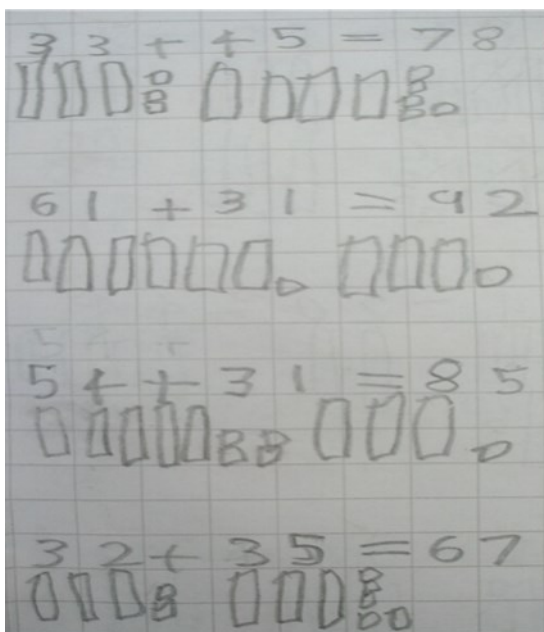 33+45=78
61+31=92
54+31=85
32+35=67